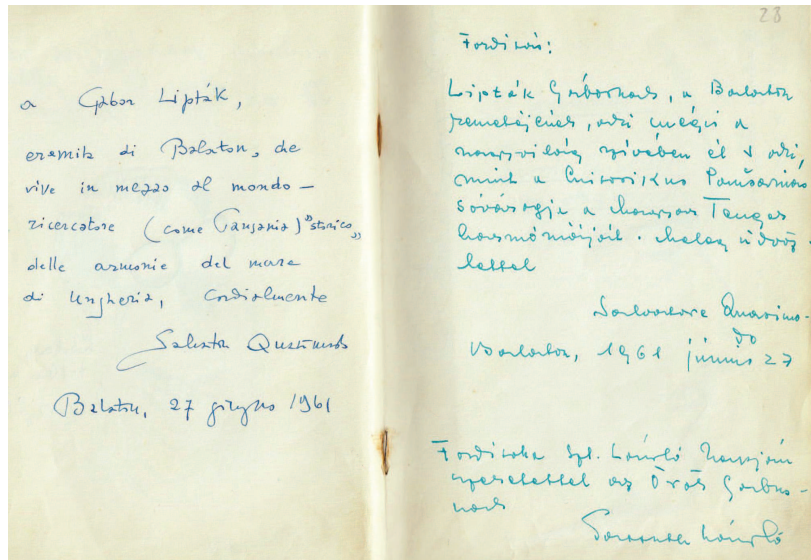 a Gábor Lipták,
eremita di Balaton, che
vive in mezzo al mondo –
ricercatore (come Pausania) "storico"
delle armonie del mare
di Ungheria, cordialmente
Salvatore Quasimodo
Balaton, 27 giugno 1961
28
Fordítás:
Lipták Gábornak, a Balaton
remetéjének, aki mégis a
nagyvilág szívében él s aki,
mint a historikus Pausanias
a Magyar Tenger
harmóniáját. Meleg üdvöz-
lettel
Salvatore Quasimo-
do
Balaton, 1961 június 27
Fordította Szt. László napján
szeretettel az Örös Gábor-
nak
László